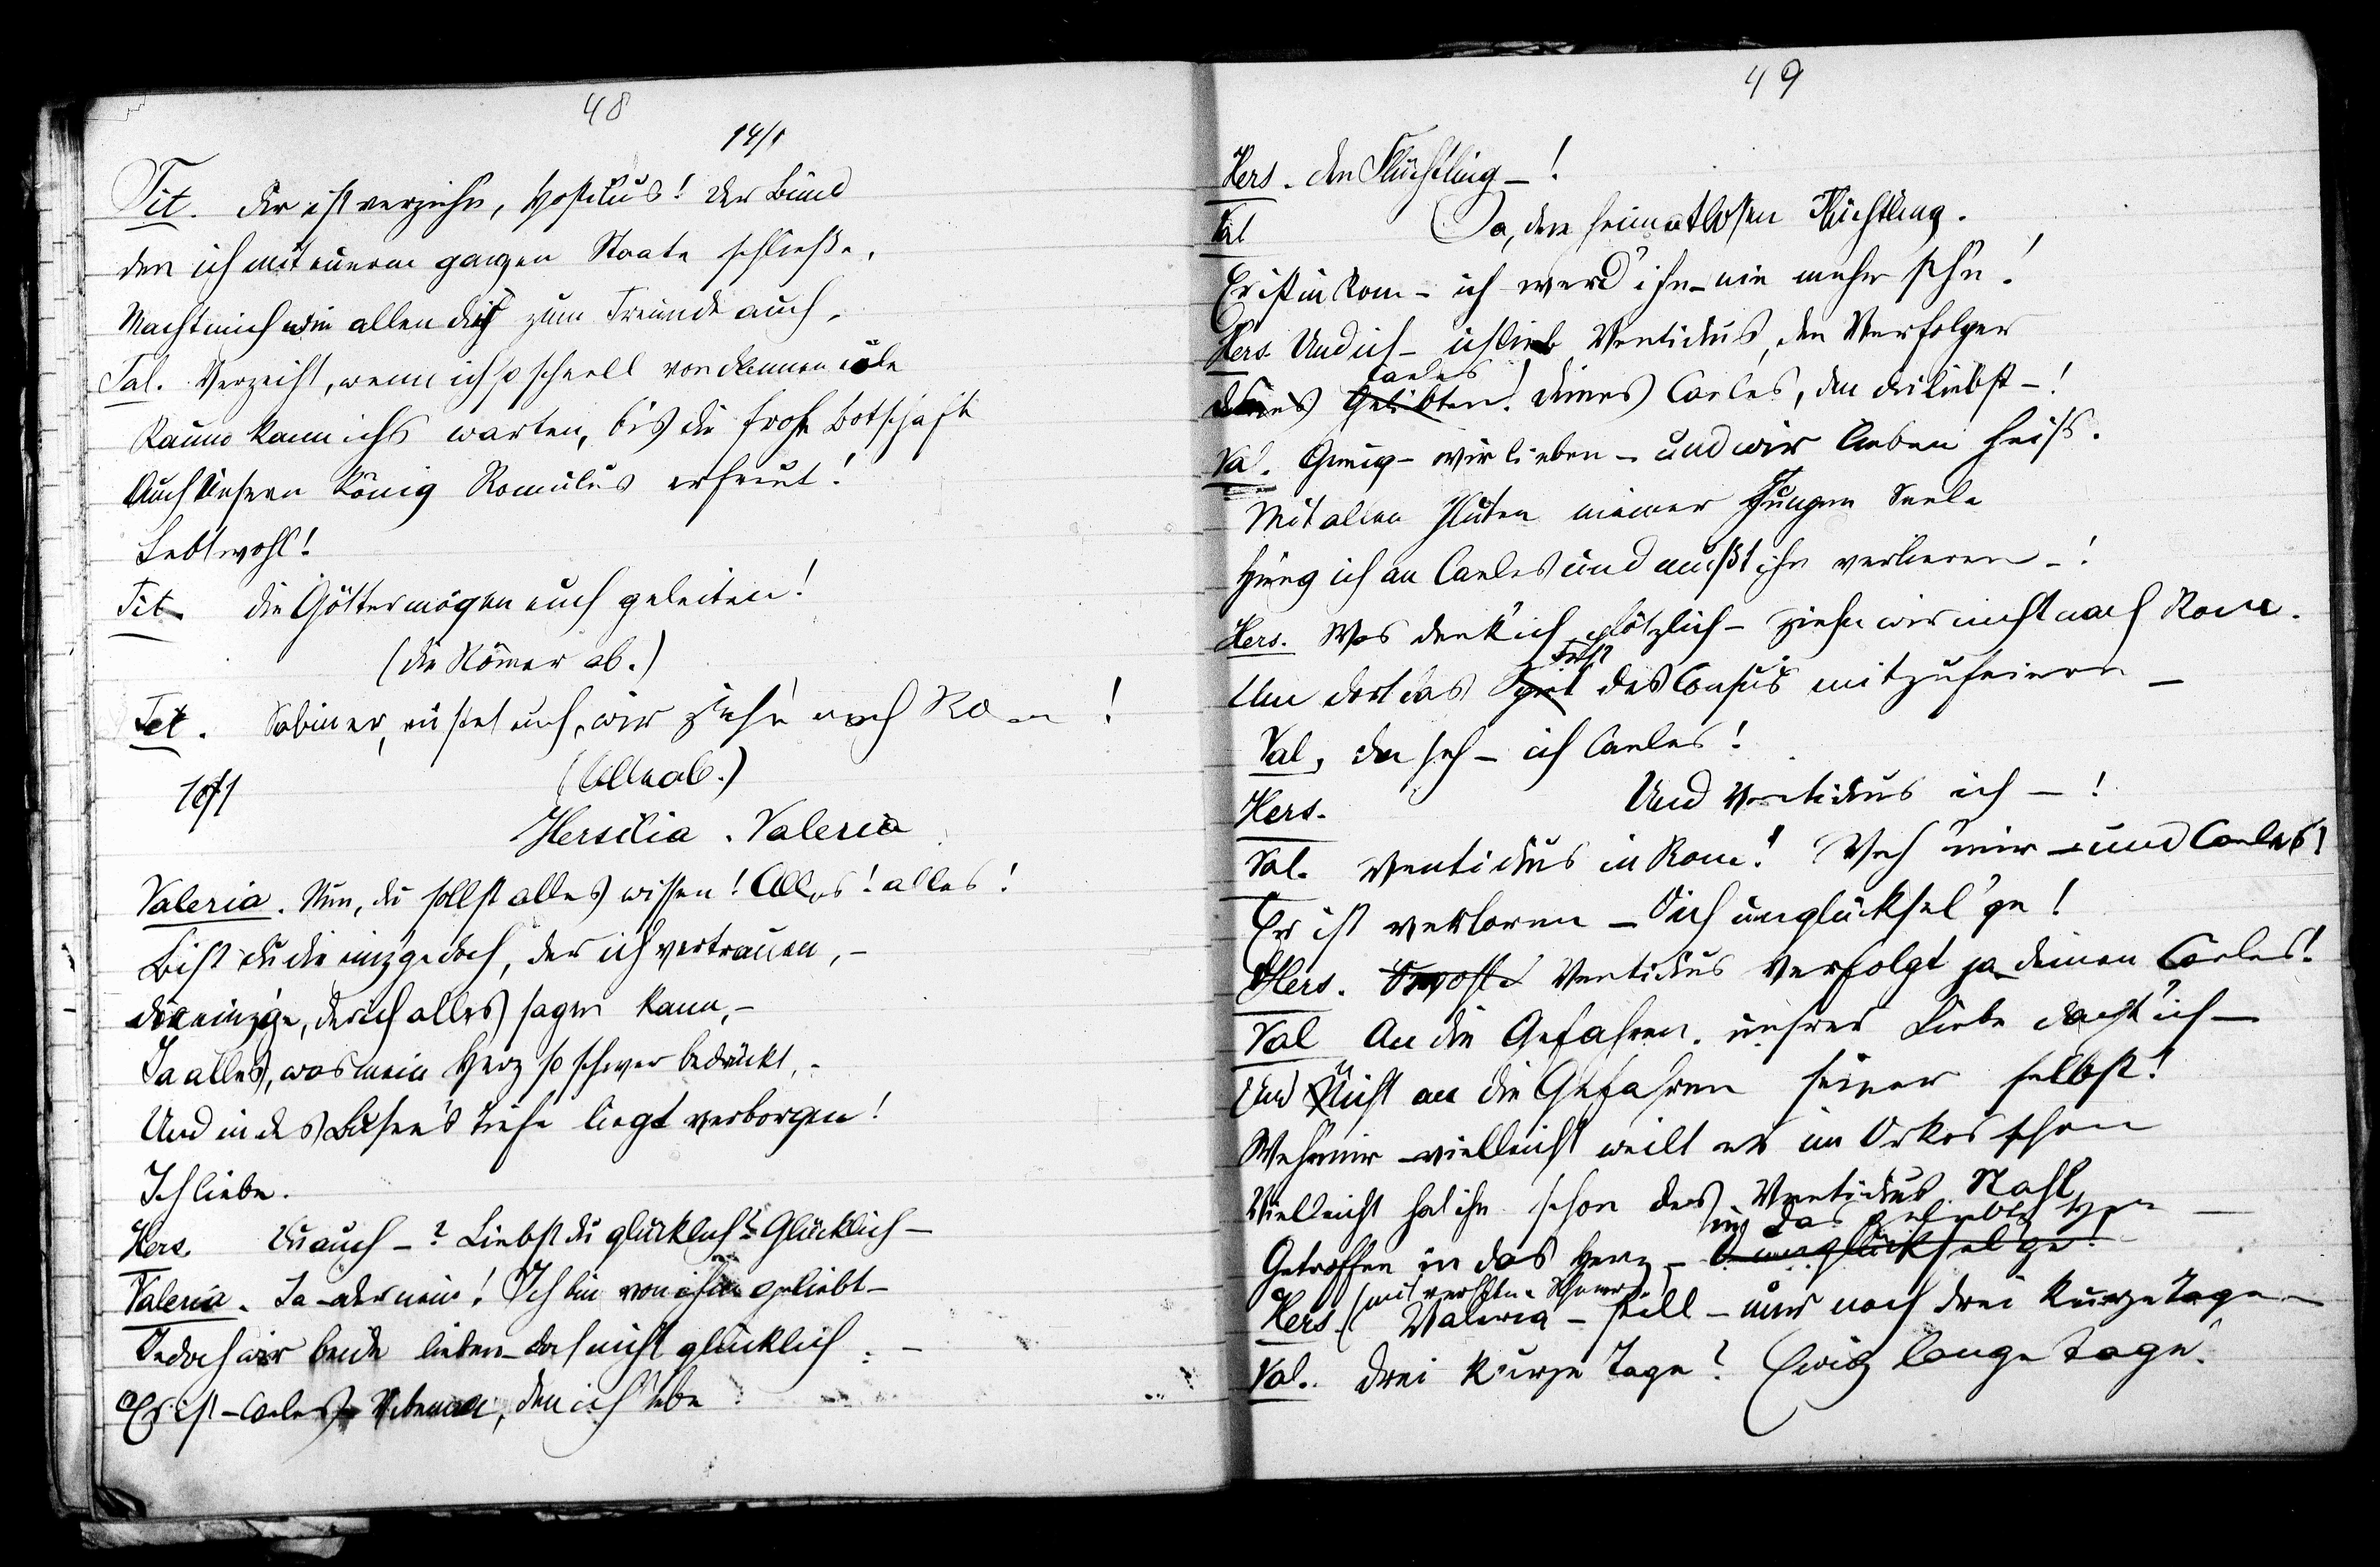 48
14/1
Tit. Dir ist verziehn, Hostilus! Der Bund
den ich mit eurem ganzen Staate schließe,
Macht mich wie allen dir zum Freunde auch.
Tal. Verzeiht, wenn ich so schnell von dannen eile
Kaum kann ichs warten, bis die frohe Botschaft
Auch unsern König Romulus erfreut!
Lebtwohl!
Tit. Die Götter mögen euch geleiten!
(Die Römer ab.)
Tit. Sabiner, rüstet euch, wir ziehn nach Rom!
(Alle ab.)
16/1
Hersilia. Valeria
Valeria. Nun, du sollst alles wissen! Alles! alles!
Bist du die einzge doch, der ich vertrauen, –
die einzge, der ich alles sagen kann, –
Ja alles, was mein Herz so schwer bedrückt, –
Und in des Busens Tiefe liegt verborgen!
Ich liebe.
Hers. Du auch –? Liebst du glücklich? Glücklich –
Valeria. Ja – aber nein! Ich bin von ihm geliebt –
Jedoch wir beide lieben – doch nicht glücklich. –
Er ist – Caeles, den ich liebe
49
Hers. den Flüchtling –!
Val Ja, den heimatlosen Flüchtling.
Er ist in Rom – ich werd' ihn nie mehr sehn!
Hers. Und ich – ich lieb Ventidus, den Verfolger
Caeles
deines Geliebten! deines Caeles, den du liebst –!
Val. Genug – wir lieben – und wir lieben heiß.
Mit allen Gluten meiner jungen Seele
Hing ich an Caeles und mußt ihn verlieren –!
Hers. Was denk' ich plötzlich – ziehn wir nicht nach Rom.
Fest
Um dort das Spiel des Consus mitzufeiern –
Val, da seh – ich Caeles!
Hers. Und Ventidus ich –!
Val. Ventidus in Rom! Weh mir – und Caeles!
Er ist verloren – Ich unglücksel'ge!
Hers. Ventidus verfolgt ja deinen Caeles!
Val An die Gefahren unsrer Liebe dacht' ich –
Und Nicht an die Gefahren seiner selbst!
Weh mir – vielleicht weilt er im Orkus schon
Vielleicht hat ihn schon des Ventidus Stahl
in das geliebte Herz –
Getroffen in das Herz – O unglücksel'ge!
Hers. (mit Schmerz) Valeria – still – nur noch drei kurze Tage –
Val. Drei kurze Tage? Ewig lange Tage.